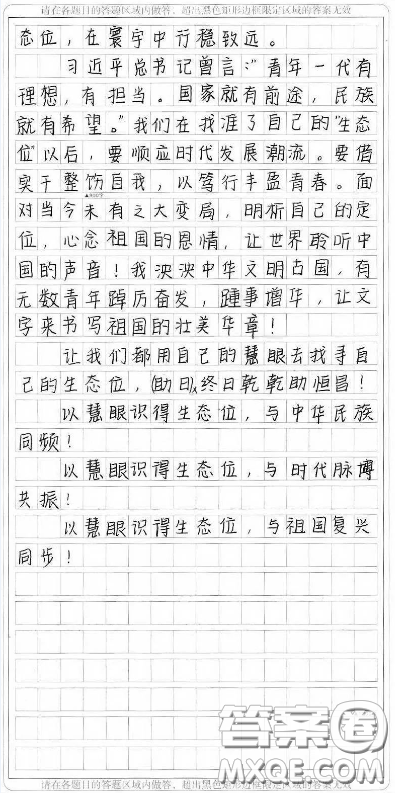 请在各题目的答题区域内做答，超出黑色矩形边框限定区域的答案无效
态位，在寰宇中行稳致远。
习近平总书记曾言：“青年一代有
理想，有担当。国家就有前途，民族
就有希望。”我们在找准了自己的“生态
位”以后，要顺应时代发展潮流。要借
实干整饬自我，以笃行丰盈青春。面
对当今未有之大变局，明析自己的定
位，心念祖国的恩情，让世界聆听中
国的声音！我泱泱中华文明古国，有
无数青年踔厉奋发，踵事增华，让文
字来书写祖国的壮美华章！
让我们都用自己的慧眼去找寻自
己的生态位，(助日)终日乾乾助恒昌！
以慧眼识得生态位，与中华民族
同频！
以慧眼识得生态位，与时代脉搏
共振！
以慧眼识得生态位，与祖国复兴
同步！
请在各题目的答题区域内做答，超出黑色矩形边框限定区域的答案无效
答案卷
MXQE.COM